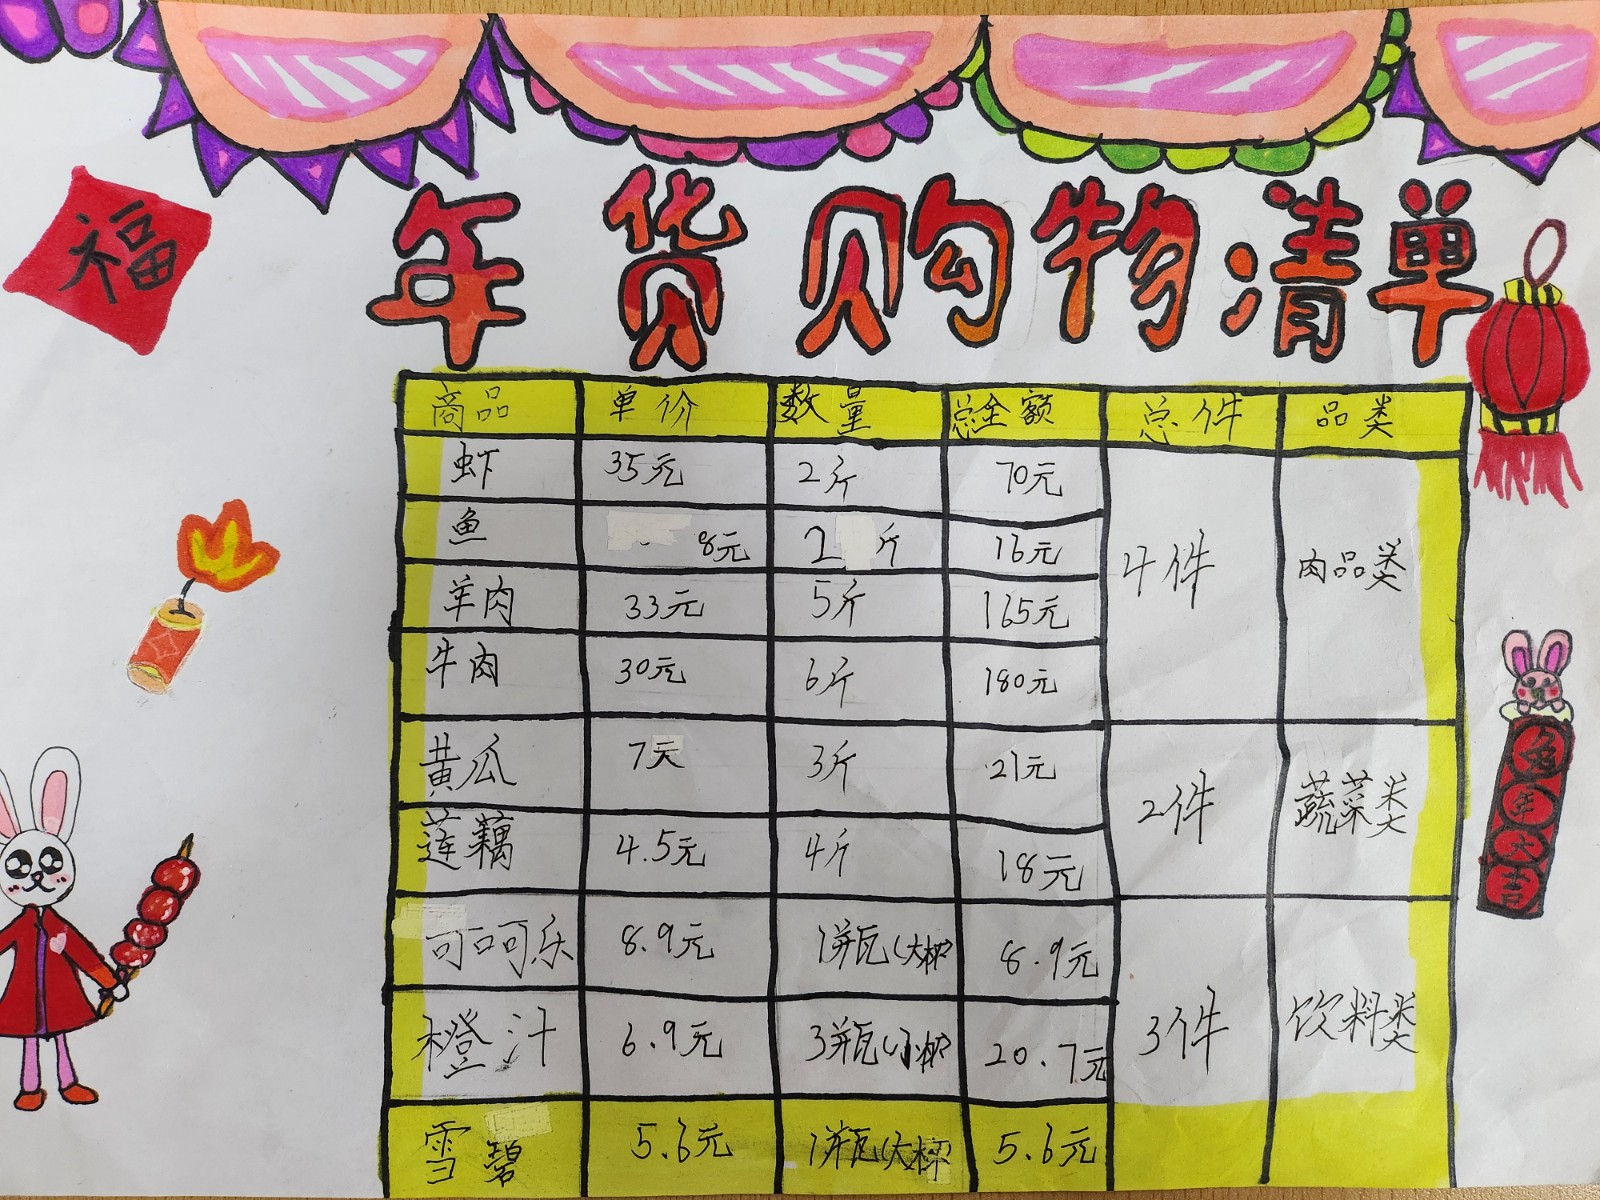 年货购物清单
福
商品 单价 数量 总金额 总件 品类
虾 35元 2斤 70元
鱼 8元 2斤 16元
4件 肉品类
羊肉 33元 5斤 165元
牛肉 30元 6斤 180元
黄瓜 7元 3斤 21元
2件 蔬菜类
莲藕 4.5元 4斤 18元
可口可乐 8.9元 1瓶(大杯 8.9元
橙汁 6.9元 3瓶(小杯 20.7元
3件 饮料类
雪碧 5.6元 1瓶(大杯 5.6元
兔年大吉